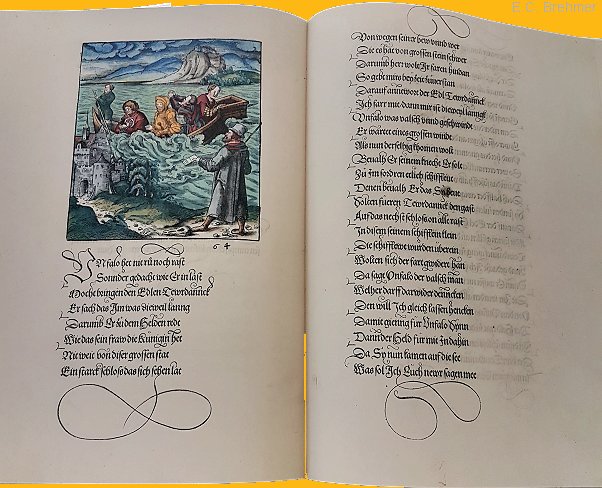 64
Unfalo het nie rů noch rast
Sonnder gedacht wie Er in last
Mocht bringen den Edlen Tewrdannck
Er sach das Im was die weil lanng
Darumb Er zů dem Helden redt
Wie das sein fraw die Künigin het
Nit weit von diser grossen stat
Ein starck schloss das sich sehen lat
Von wegen seiner hew vnnd wer
Die es hat von grossen stein schwer
Darumb herr wolt Ir faren hindan
So gebt mirs bey zeit zuuerstan
Darauf anntwort der Edl Tewrdannck
Ich far mit dann mir ist die weyl lanngk
Vnfalo was valsch vnnd geschwinde
Er wartet eines grossen winds
Als nun derselbig khomen wolt
Beualh Er seinem knecht Er solt
Zů Im fordren etlich schiffleut
Denen beualh Er das Sy heut
Solten fueren Tewrdannck den gast
Auf das nechst schloss on alle rast
In disem seinem schifflein klein
Die schifflewt wurden vberein
Wolten sich der fart gwidert han
Da sagt Vnfalo der valsch man
Welher darff darwider dennckhen
Den will Ich gleich lassen henckhen
Damit gieng für Vnfalo hynn
Dann der Held für mit In dahin
Da Sy nun kamen auf die see
Was sol Ich Euch newr sagen mee
E.C. Brehmer